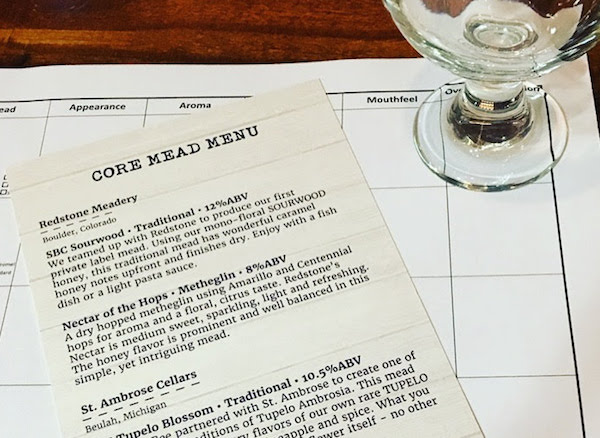 ead
Appearance
Aroma
Mouthfeel
CORE MEAD MENU
Redstone Meadery
Boulder, Colorado
SBC Sourwood • Traditional • 12%ABV
We teamed up with Redstone to produce our first
private label mead. Using our mono-floral SOURWOOD
honey, this traditional mead has wonderful caramel
honey notes upfront and finishes dry. Enjoy with a fish
dish or a light pasta sauce.
Nectar of the Hops • Metheglin • 8%ABV
A dry hopped metheglin using Amarillo and Centennial
hops for aroma and a floral, citrus taste. Redstone's
Nectar is medium sweet, sparkling, light and refreshing.
The honey flavor is prominent and well balanced in this
simple, yet intriguing mead.
St. Ambrose Cellars
Beulah, Michigan
Tupelo Blossom • Traditional • 10.5%ABV
partnered with St. Ambrose to create one of
ditions of Tupelo Ambrosia. This mead
flavors of our own rare TUPELO
apple and spice. What you
ower itself – no other